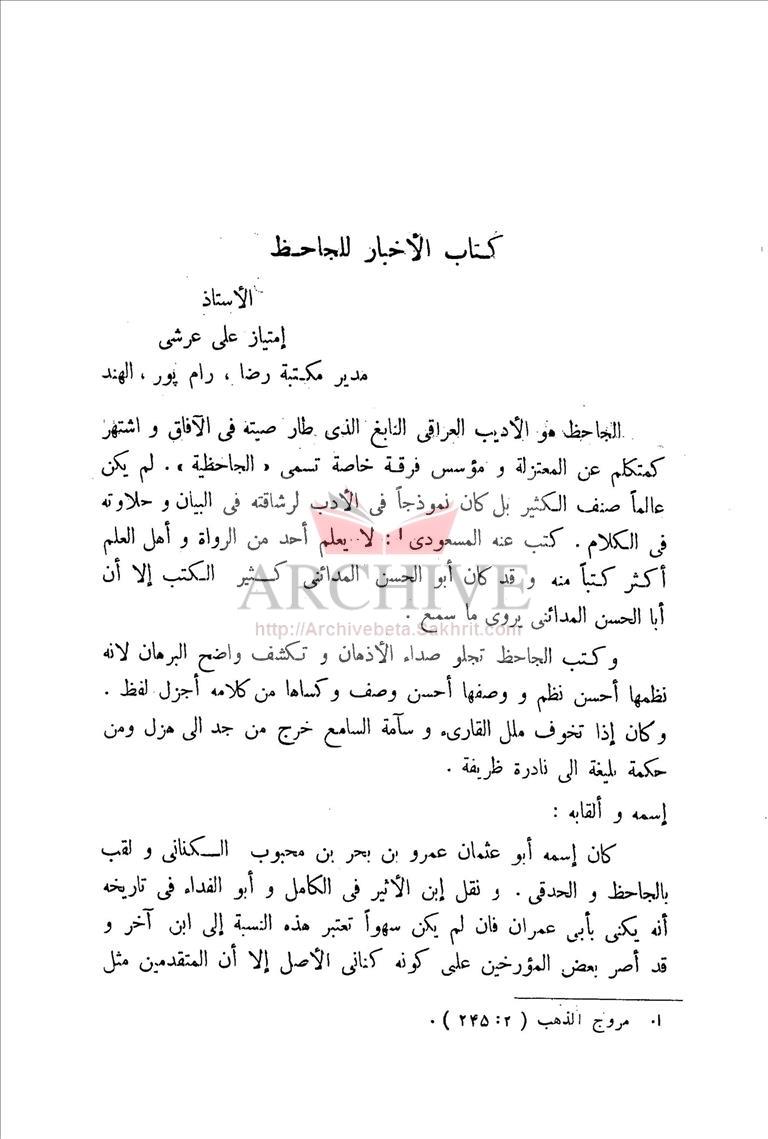 كتاب الأخبار للجاحظ
الأستاذ
إمتياز على عرشى
مدير مكتبة رضا ، رام پور ، الهند
الجاحظ هو الأديب العراقى النابغ الذى طار صيته فى الآفاق و اشتهر
كمتكلم عن المعتزلة و مؤسس فرقة خاصة تسمى « الجاحظية » . لم يكن
عالماً صنف الكثير بل كان نموذجاً فى الأدب لرشاقته فى البيان و حلاوته
فى الكلام . كتب عنه المسعودى ١ : لا يعلم أحد من الرواة و أهل العلم
أكثر كتباً منه و قد كان أبو الحسن المدائنى كثير الكتب إلا أن
أبا الحسن المدائنى يروى ما سمع .
ARCHIVE
http://Archivebeta.Sakhrit.com
و كتب الجاحظ تجلو صداء الأذهان و تكشف واضح البرهان لانه
نظمها أحسن نظم و وصفها أحسن وصف و كساها من كلامه أجزل لفظ .
و كان إذا تخوف ملل القارىء و سآمة السامع خرج من جد الى هزل ومن
حكمة بليغة الى نادرة ظريفة .
إسمه و ألقابه :
كان إسمه أبو عثمان عمرو بن بحر بن محبوب الكنانى و لقب
بالجاحظ و الحدقى . و نقل إبن الأثير فى الكامل و أبو الفداء فى تاريخه
أنه يكنى بأبى عمران فان لم يكن سهواً تعتبر هذه النسبة إلى ابن آخر و
قد أصر بعض المؤرخين على كونه كنانى الأصل إلا أن المتقدمين مثل
١. مروج الذهب ( ٢ : ٢۴۵ ) .